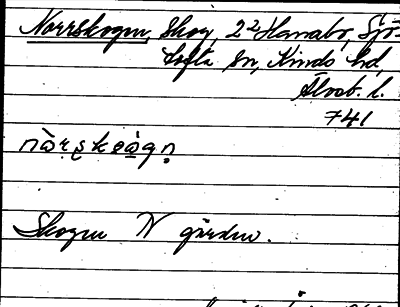 Norrskogen, Skog, 2² Hannabo, Sjö-
tofta sn, Kinds hd,
Älvsb. l.
741
nòrskoágn
Skogen N gården.